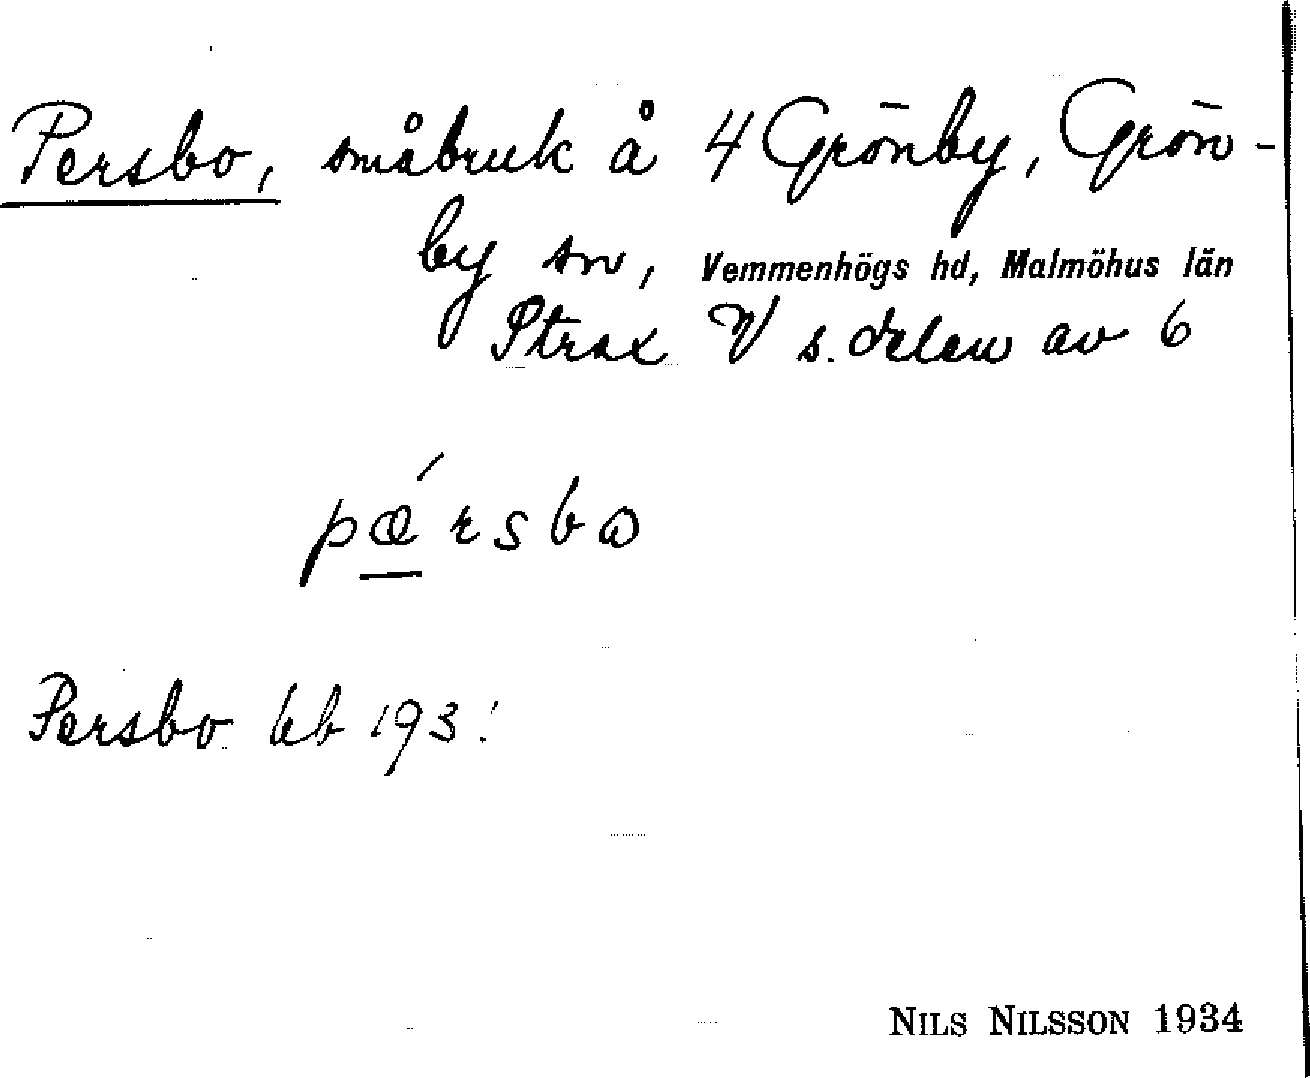 Persbo, småbruk å 4 Grönby, Grön-
by sn, Vemmenhögs hd, Malmöhus län
Strax V s. delen av 6
pǽrsbo
Persbo kb 193!
NILS NILSSON 1934